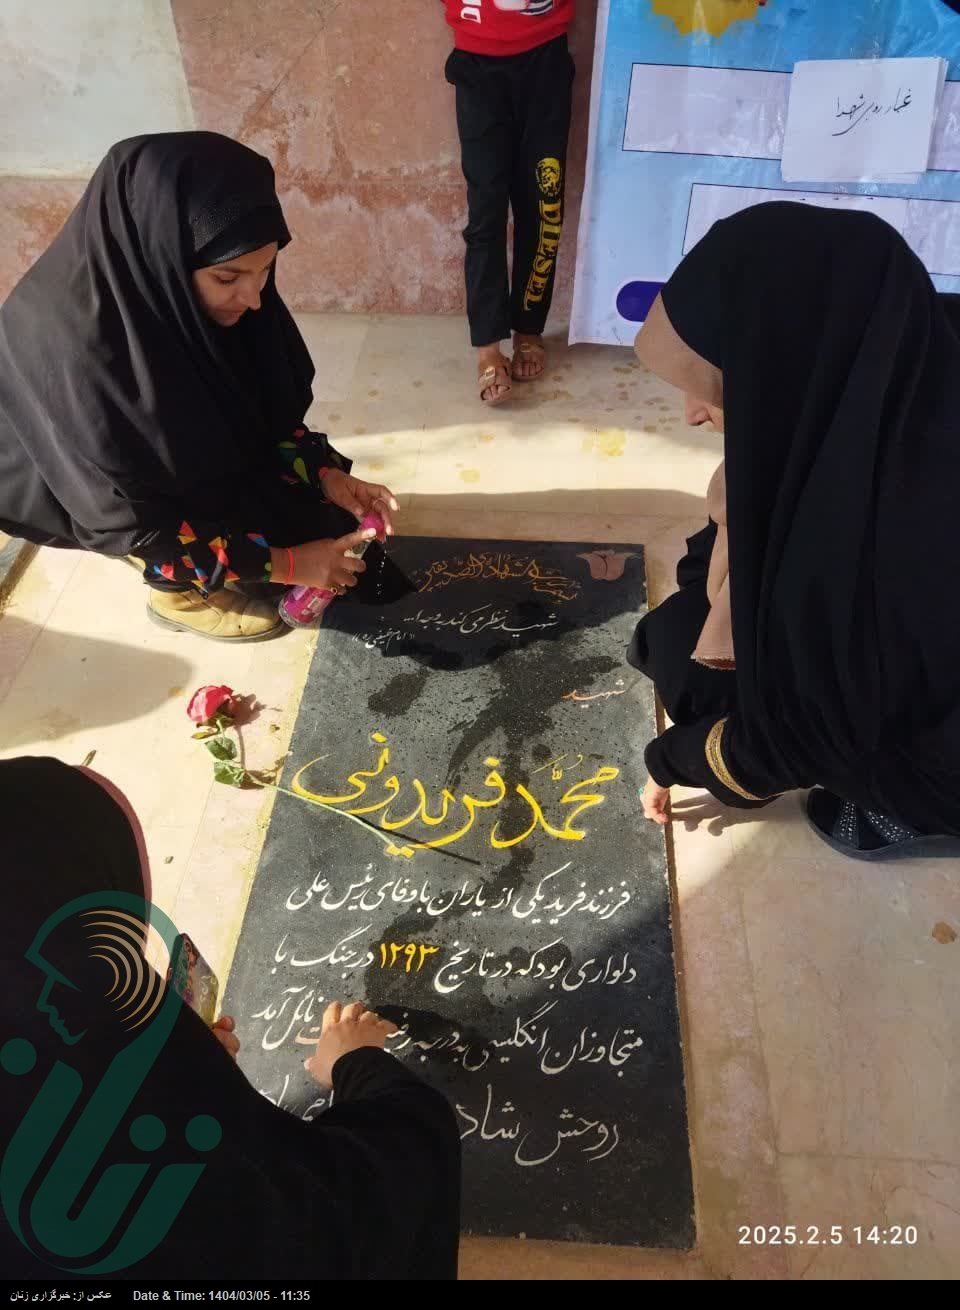 DIESEL
غبار روبی شهدا
شهید نظر می کند به وجه ا...
«امام خمینی ره»
شهید
محمد فریدونی
فرزند فرید یکی از یاران باوفای رئیس علی
دلواری بود که در تاریخ ۱۲۹۳ در جنگ با
متجاوزان انگلیسی به درجه رفیع نائل آمد
روحش شاد
زنان
2025.2.5 14:20
عکس از: خبرگزاری زنان Date & Time: 1404/03/05 - 11:35